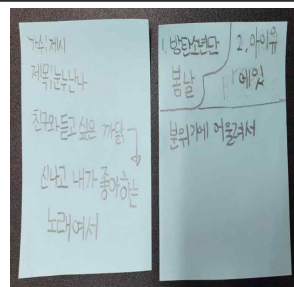 가수: 제시
제목: 눈누난나
친구와 듣고 싶은 까닭
신나고 내가 좋아하는
노래여서
1. 방탄소년단
봄날
2. 아이유
에잇
분위기에 어울려서